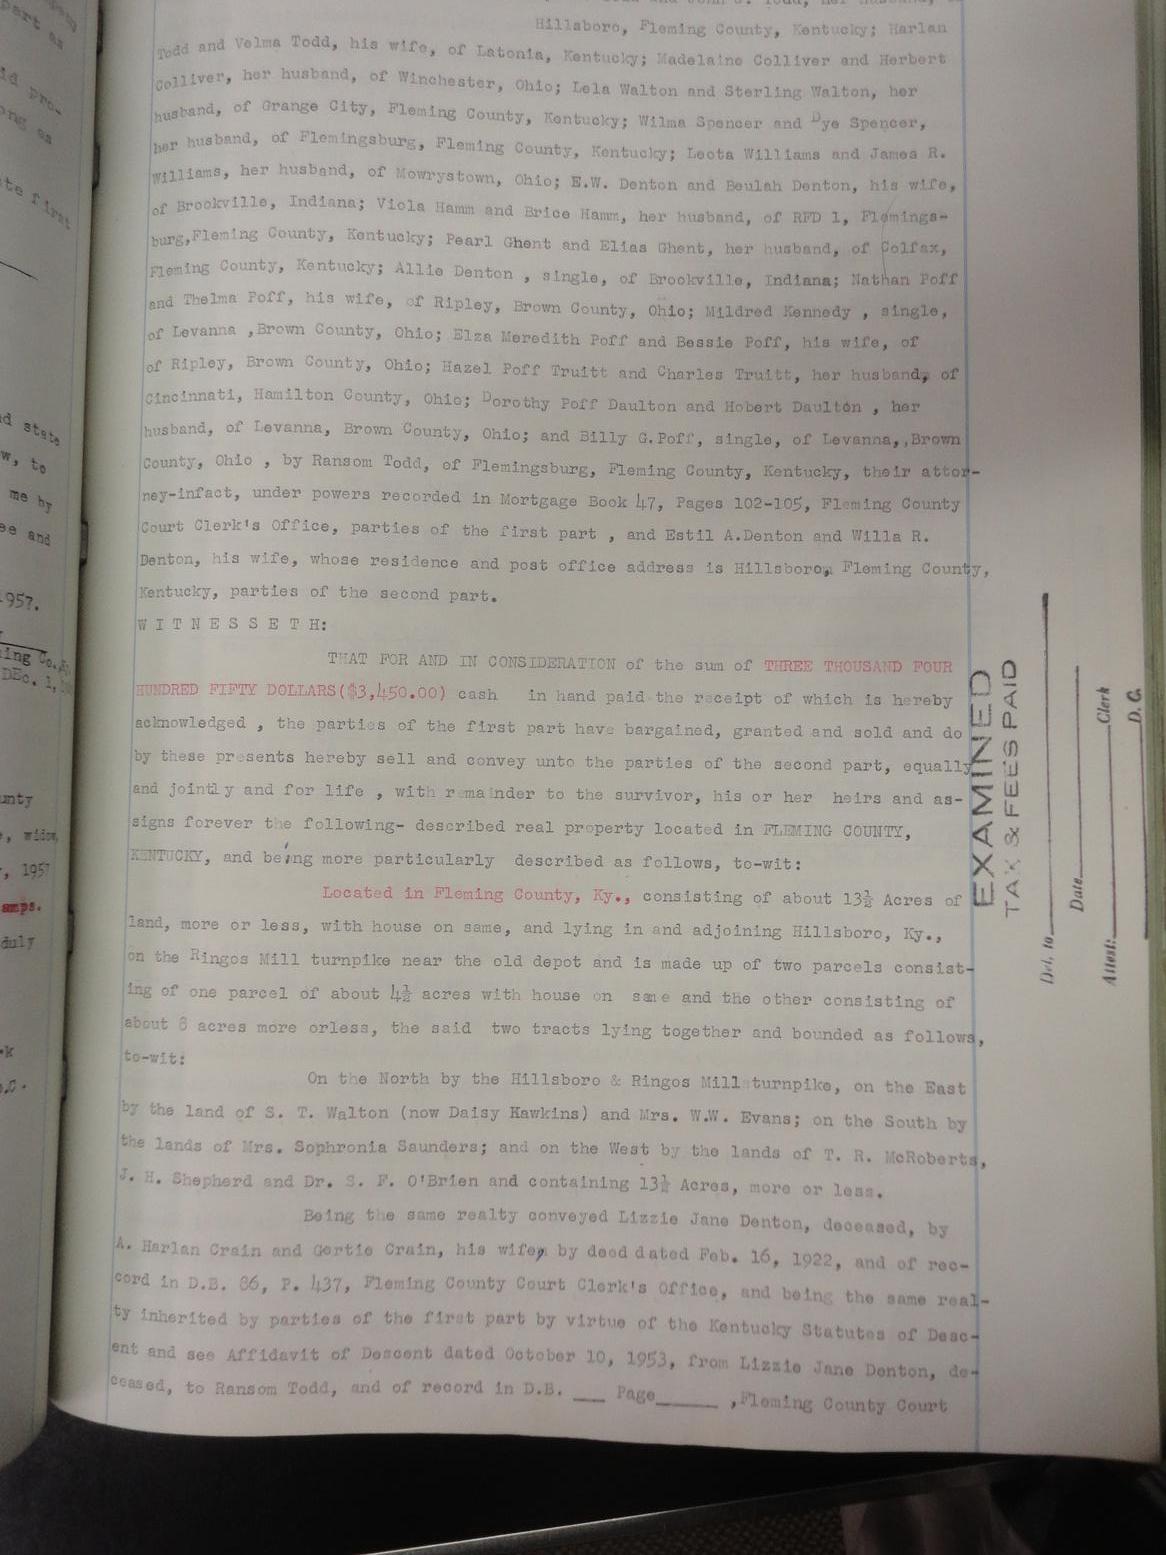 Hillsboro, Fleming County, Kentucky; Harlan
Todd and Velma Todd, his wife, of Latonia, Kentucky; Madelaine Colliver and Herbert
Colliver, her husband, of Winchester, Ohio; Lela Walton and Sterling Walton, her
husband, of Grange City, Fleming County, Kentucky; Wilma Spencer and Dye Spencer,
her husband, of Flemingsburg, Fleming County, Kentucky; Leota Williams and James R.
Williams, her husband, of Mowrystown, Ohio; E.W. Denton and Beulah Denton, his wife,
of Brookville, Indiana; Viola Hamm and Brice Hamm, her husband, of RFD 1, Flemings-
burg,Fleming County, Kentucky; Pearl Ghent and Elias Ghent, her husband, of Colfax,
Fleming County, Kentucky; Allie Denton , single, of Brookville, Indiana; Nathan Poff
and Thelma Poff, his wife, of Ripley, Brown County, Ohio; Mildred Kennedy , single,
of Levanna ,Brown County, Ohio; Elza Meredith Poff and Bessie Poff, his wife, of
of Ripley, Brown County, Ohio; Hazel Poff Truitt and Charles Truitt, her husband, of
Cincinnati, Hamilton County, Ohio; Dorothy Poff Daulton and Hobert Daulton , her
husband, of Levanna, Brown County, Ohio; and Billy G.Poff, single, of Levanna,,Brown
County, Ohio , by Ransom Todd, of Flemingsburg, Fleming County, Kentucky, their attor-
ney-infact, under powers recorded in Mortgage Book 47, Pages 102-105, Fleming County
Court Clerk's Office, parties of the first part , and Estil A.Denton and Willa R.
Denton, his wife, whose residence and post office address is Hillsboro, Fleming County,
Kentucky, parties of the second part.
W I T N E S S E T H:
THAT FOR AND IN CONSIDERATION of the sum of THREE THOUSAND FOUR
HUNDRED FIFTY DOLLARS($3,450.00) cash in hand paid the receipt of which is hereby
acknowledged , the parties of the first part have bargained, granted and sold and do
by these presents hereby sell and convey unto the parties of the second part, equally
and jointly and for life , with remainder to the survivor, his or her heirs and as-
signs forever the following- described real property located in FLEMING COUNTY,
KENTUCKY, and being more particularly described as follows, to-wit:
Located in Fleming County, Ky., consisting of about 13½ Acres of
land, more or less, with house on same, and lying in and adjoining Hillsboro, Ky.,
on the Ringos Mill turnpike near the old depot and is made up of two parcels consist-
ing of one parcel of about 4½ acres with house on same and the other consisting of
about 8 acres more orless, the said two tracts lying together and bounded as follows,
to-wit:
On the North by the Hillsboro & Ringos Mill turnpike, on the East
by the land of S. T. Walton (now Daisy Hawkins) and Mrs. W.W. Evans; on the South by
the lands of Mrs. Sophronia Saunders; and on the West by the lands of T. R. McRoberts,
J. H. Shepherd and Dr. S. F. O'Brien and containing 13½ Acres, more or less.
Being the same realty conveyed Lizzie Jane Denton, deceased, by
A. Harlan Crain and Gertie Crain, his wife, by deed dated Feb. 16, 1922, and of rec-
cord in D.B. 86, P. 437, Fleming County Court Clerk's Office, and being the same real-
ty inherited by parties of the first part by virtue of the Kentucky Statutes of Desc-
ent and see Affidavit of Descent dated October 10, 1953, from Lizzie Jane Denton, de-
ceased, to Ransom Todd, and of record in D.B. ___ Page______ ,Fleming County Court
EXAMINED
TAX & FEES PAID
Del. to
Date
Attest: Clerk
D. C.
part as
ong as
te first
d state
w, to
me by
ee and
1957.
ing Co.
DEc. 1,
unty
, widow,
, 1957
amps.
duly